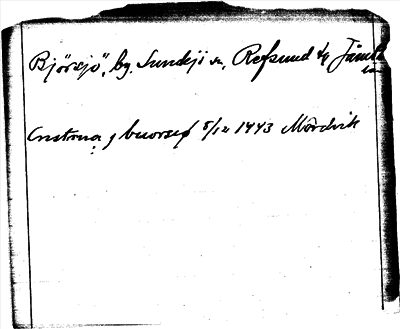 Björsjö, by. Sundsjö sn, Refsund tg Jämtl
län
Cristina j buorsejö 5/12 1443 Mördvik